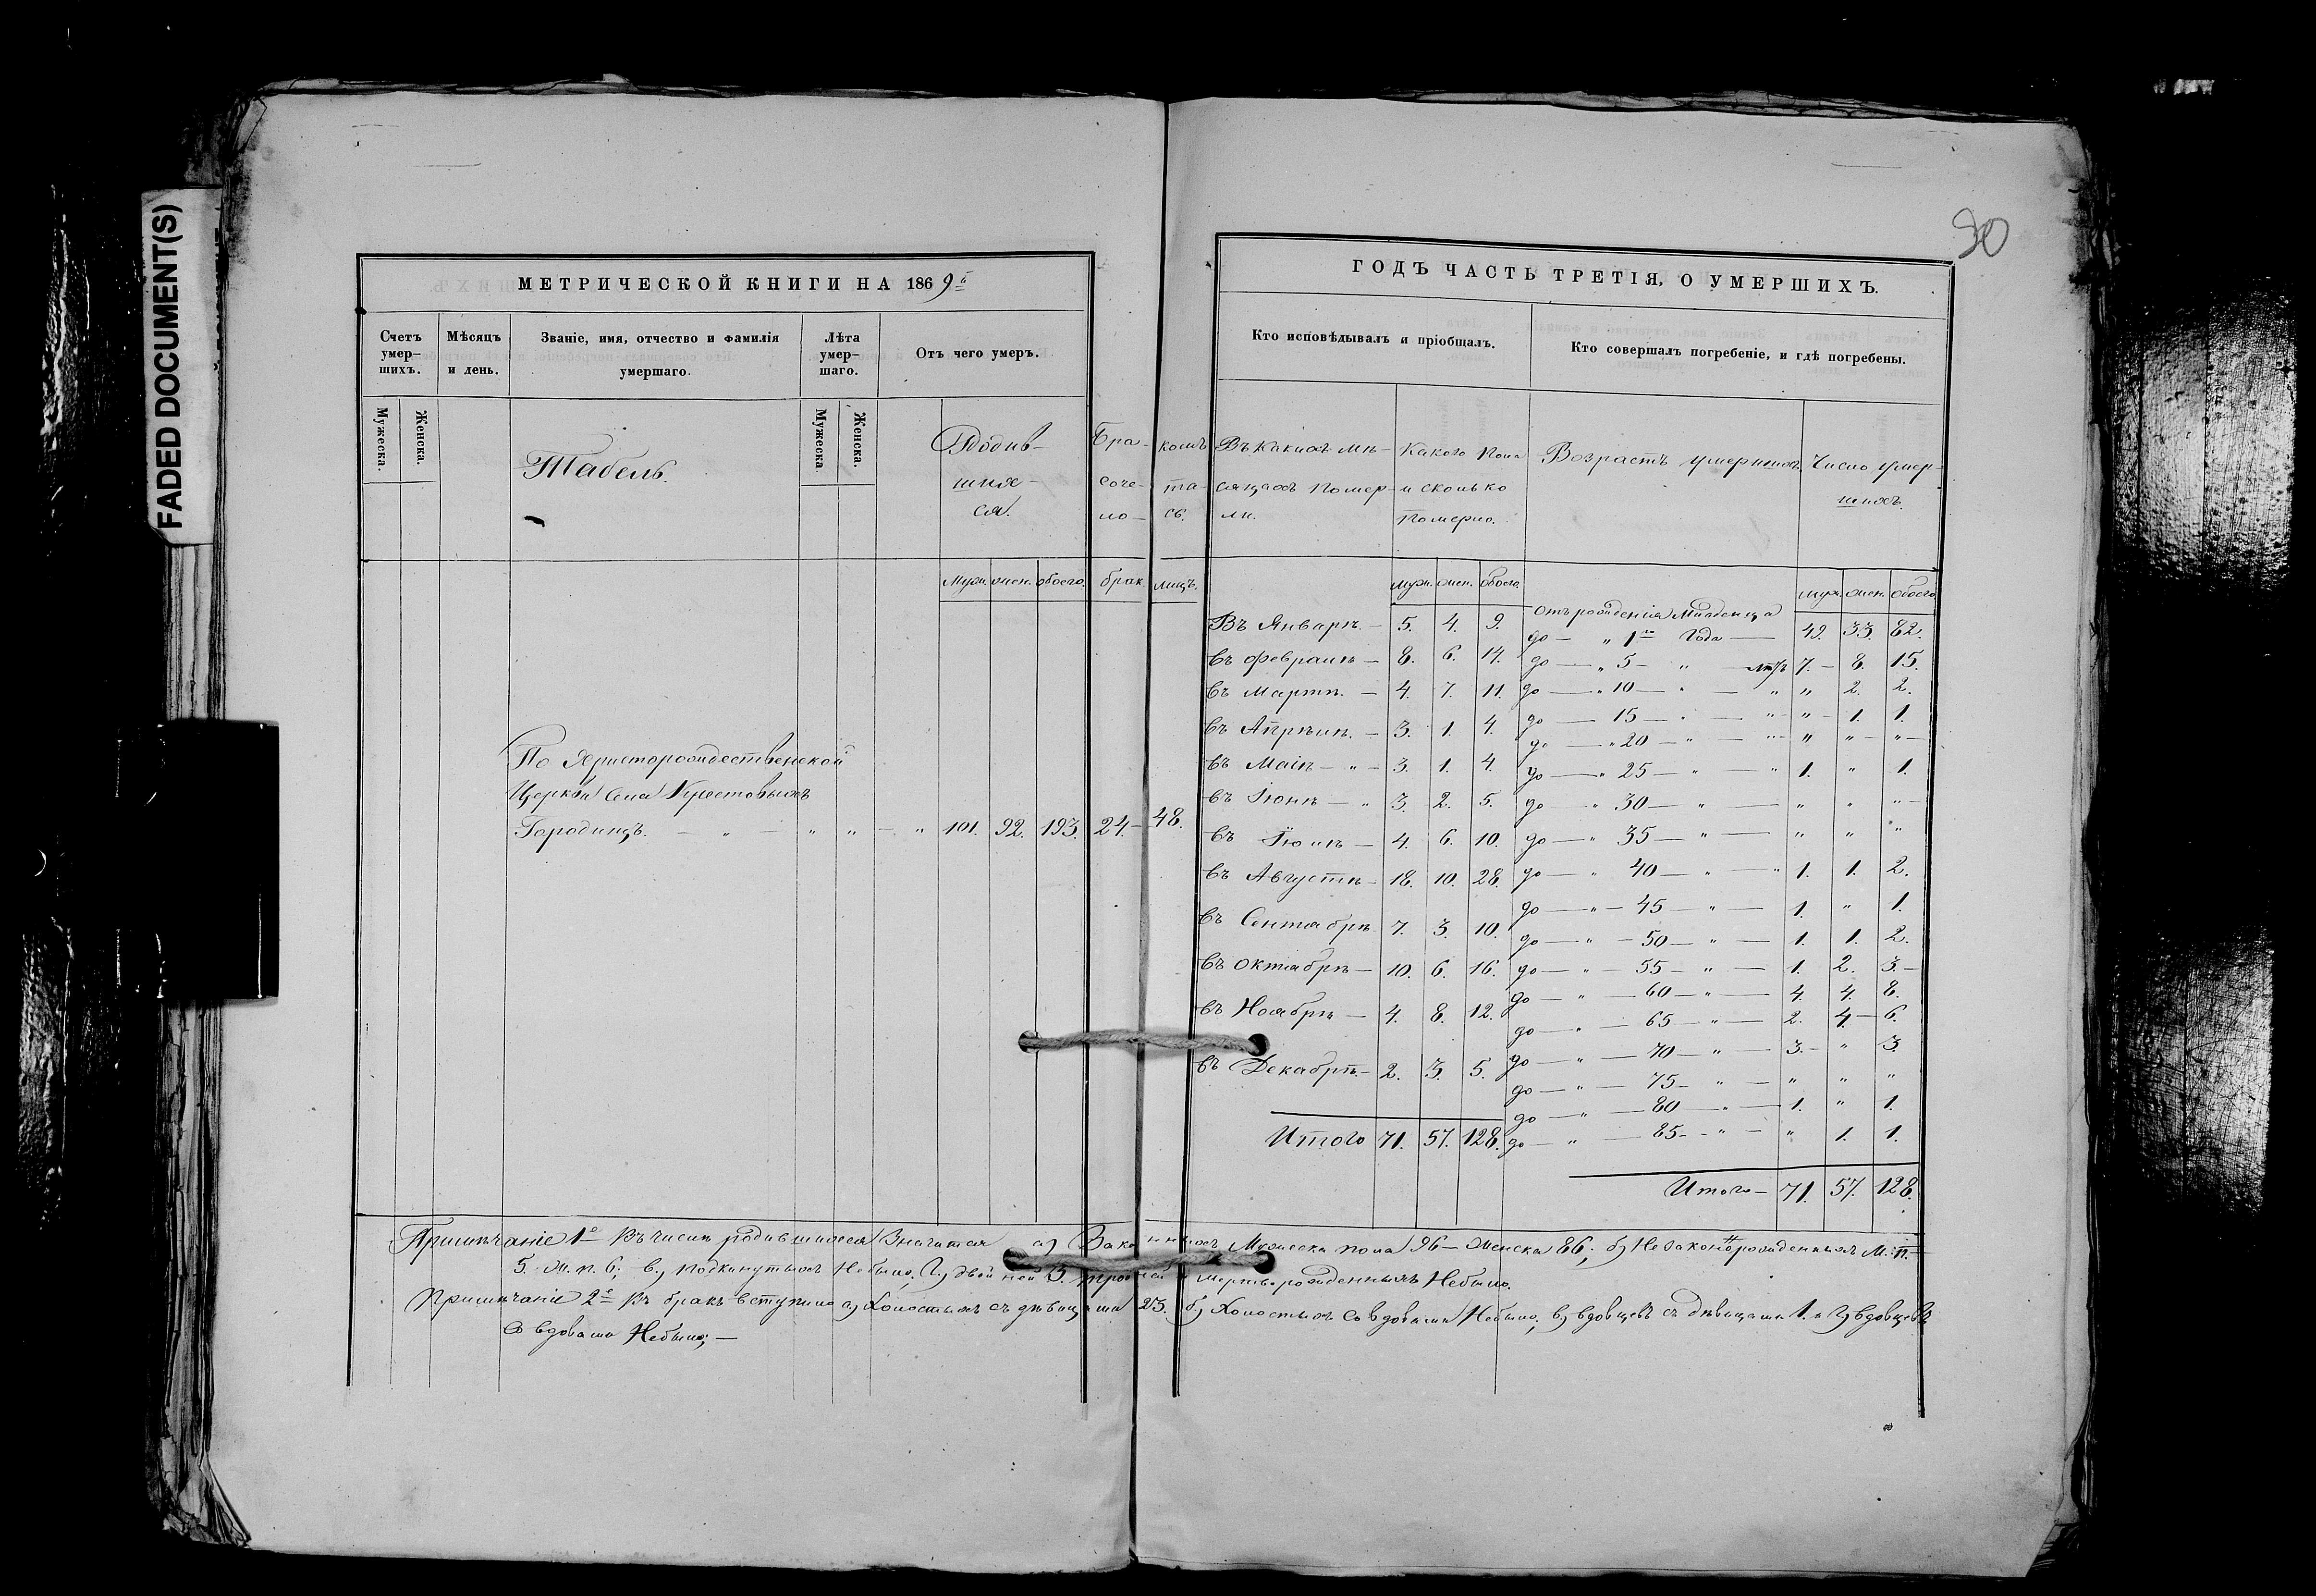 FADED DOCUMENT(S)
90
МЕТРИЧЕСКОЙ КНИГИ НА 1869й
ГОДЪ ЧАСТЬ ТРЕТІЯ, О УМЕРШИХЪ.
Счетъ умер-шихъ.
Мѣсяцъ и день.
Званіе, имя, отчество и фамилія умершаго.
Лѣта умер-шаго.
Отъ чего умеръ.
Кто исповѣдывалъ и пріобщалъ.
Кто совершалъ погребеніе, и гдѣ погребены.
Мужеска. Женска.
Табель.
Мужеска Женска.
Родив-шихъ-ся.
Бра-комъ соче-та-ло-сь.
Въ какихъ мѣ-сяцахъ помер-ли.
Какого пола и сколько померло.
Возрастъ умершихъ
Число умер-шихъ.
Муж. жен. обоего. брак. лицъ.
муж. жен. обоего.
муж. жен. обоего
По Христорождественской
Церкви Села Крестовыхъ
Городищъ. — " — " " — " 101. 92. 193. 24. — 48.
Въ Январѣ — 5. 4. 9.
въ Февралѣ — 8. 6. 14.
въ Мартѣ — 4. 7. 11.
въ Апрѣлѣ — 3. 1. 4.
въ Маіѣ — " — 3. 1. 4.
въ Іюнѣ — " 3. 2. 5.
въ Іюлѣ — 4. 6. 10.
въ Августѣ — 18. 10. 28.
въ Сентябрѣ 7. 3. 10.
въ Октябрѣ — 10. 6. 16.
въ Ноябрѣ — 4. 8. 12.
въ Декабрѣ — 2. 3. 5.
Итого 71. 57. 128.
отъ рожденія Младенца
до — " 1го года — 49. 33. 82.
до — " 5 — " — лѣтъ 7. — 8. 15.
до — " 10 — " — " " 2. 2.
до — 15 — " — " " — 1. 1.
до — " 20 — " — " " " — " —
до — " 25 — " — " 1. " 1.
до — " 30 — " — " " " —
до — " 35 — " — " " "
до — " 40 — " — " 1. 1. 2.
до — " — 45 — " — 1. " 1.
до — " — 50 — " — 1. 1. 2.
до — " — 55 — " — 1. 2. 3. —
до — " — 60 — " — 4. 4. 8.
до — " — 65 — " — 2. 4 — 6.
до — " — 70 — " — 3. — " 3.
до — " — 75 — " — " " "
до — " — 80 — " — 1. " 1.
до — " — 85 — " — " 1. 1.
Итого — 71. 57. 128.
Примѣчаніе 1е Въ числѣ родившихся Значится а) Законныхъ Мужеска пола 96 — Женска 86; б) Незаконорожденныхъ М. п. —
5. Ж. п. 6; в) подкинутыхъ Небыло, г) двойней 3. тройней и мертворожденныхъ Небыло.
Примѣчаніе 2е Въ бракъ вступило а) Холостыхъ съ дѣвицами 23. б) Холостыхъ со вдовами Небыло; в) вдовцевъ съ дѣвицами 1. и г) вдовцевъ
со вдовами Небыло; —